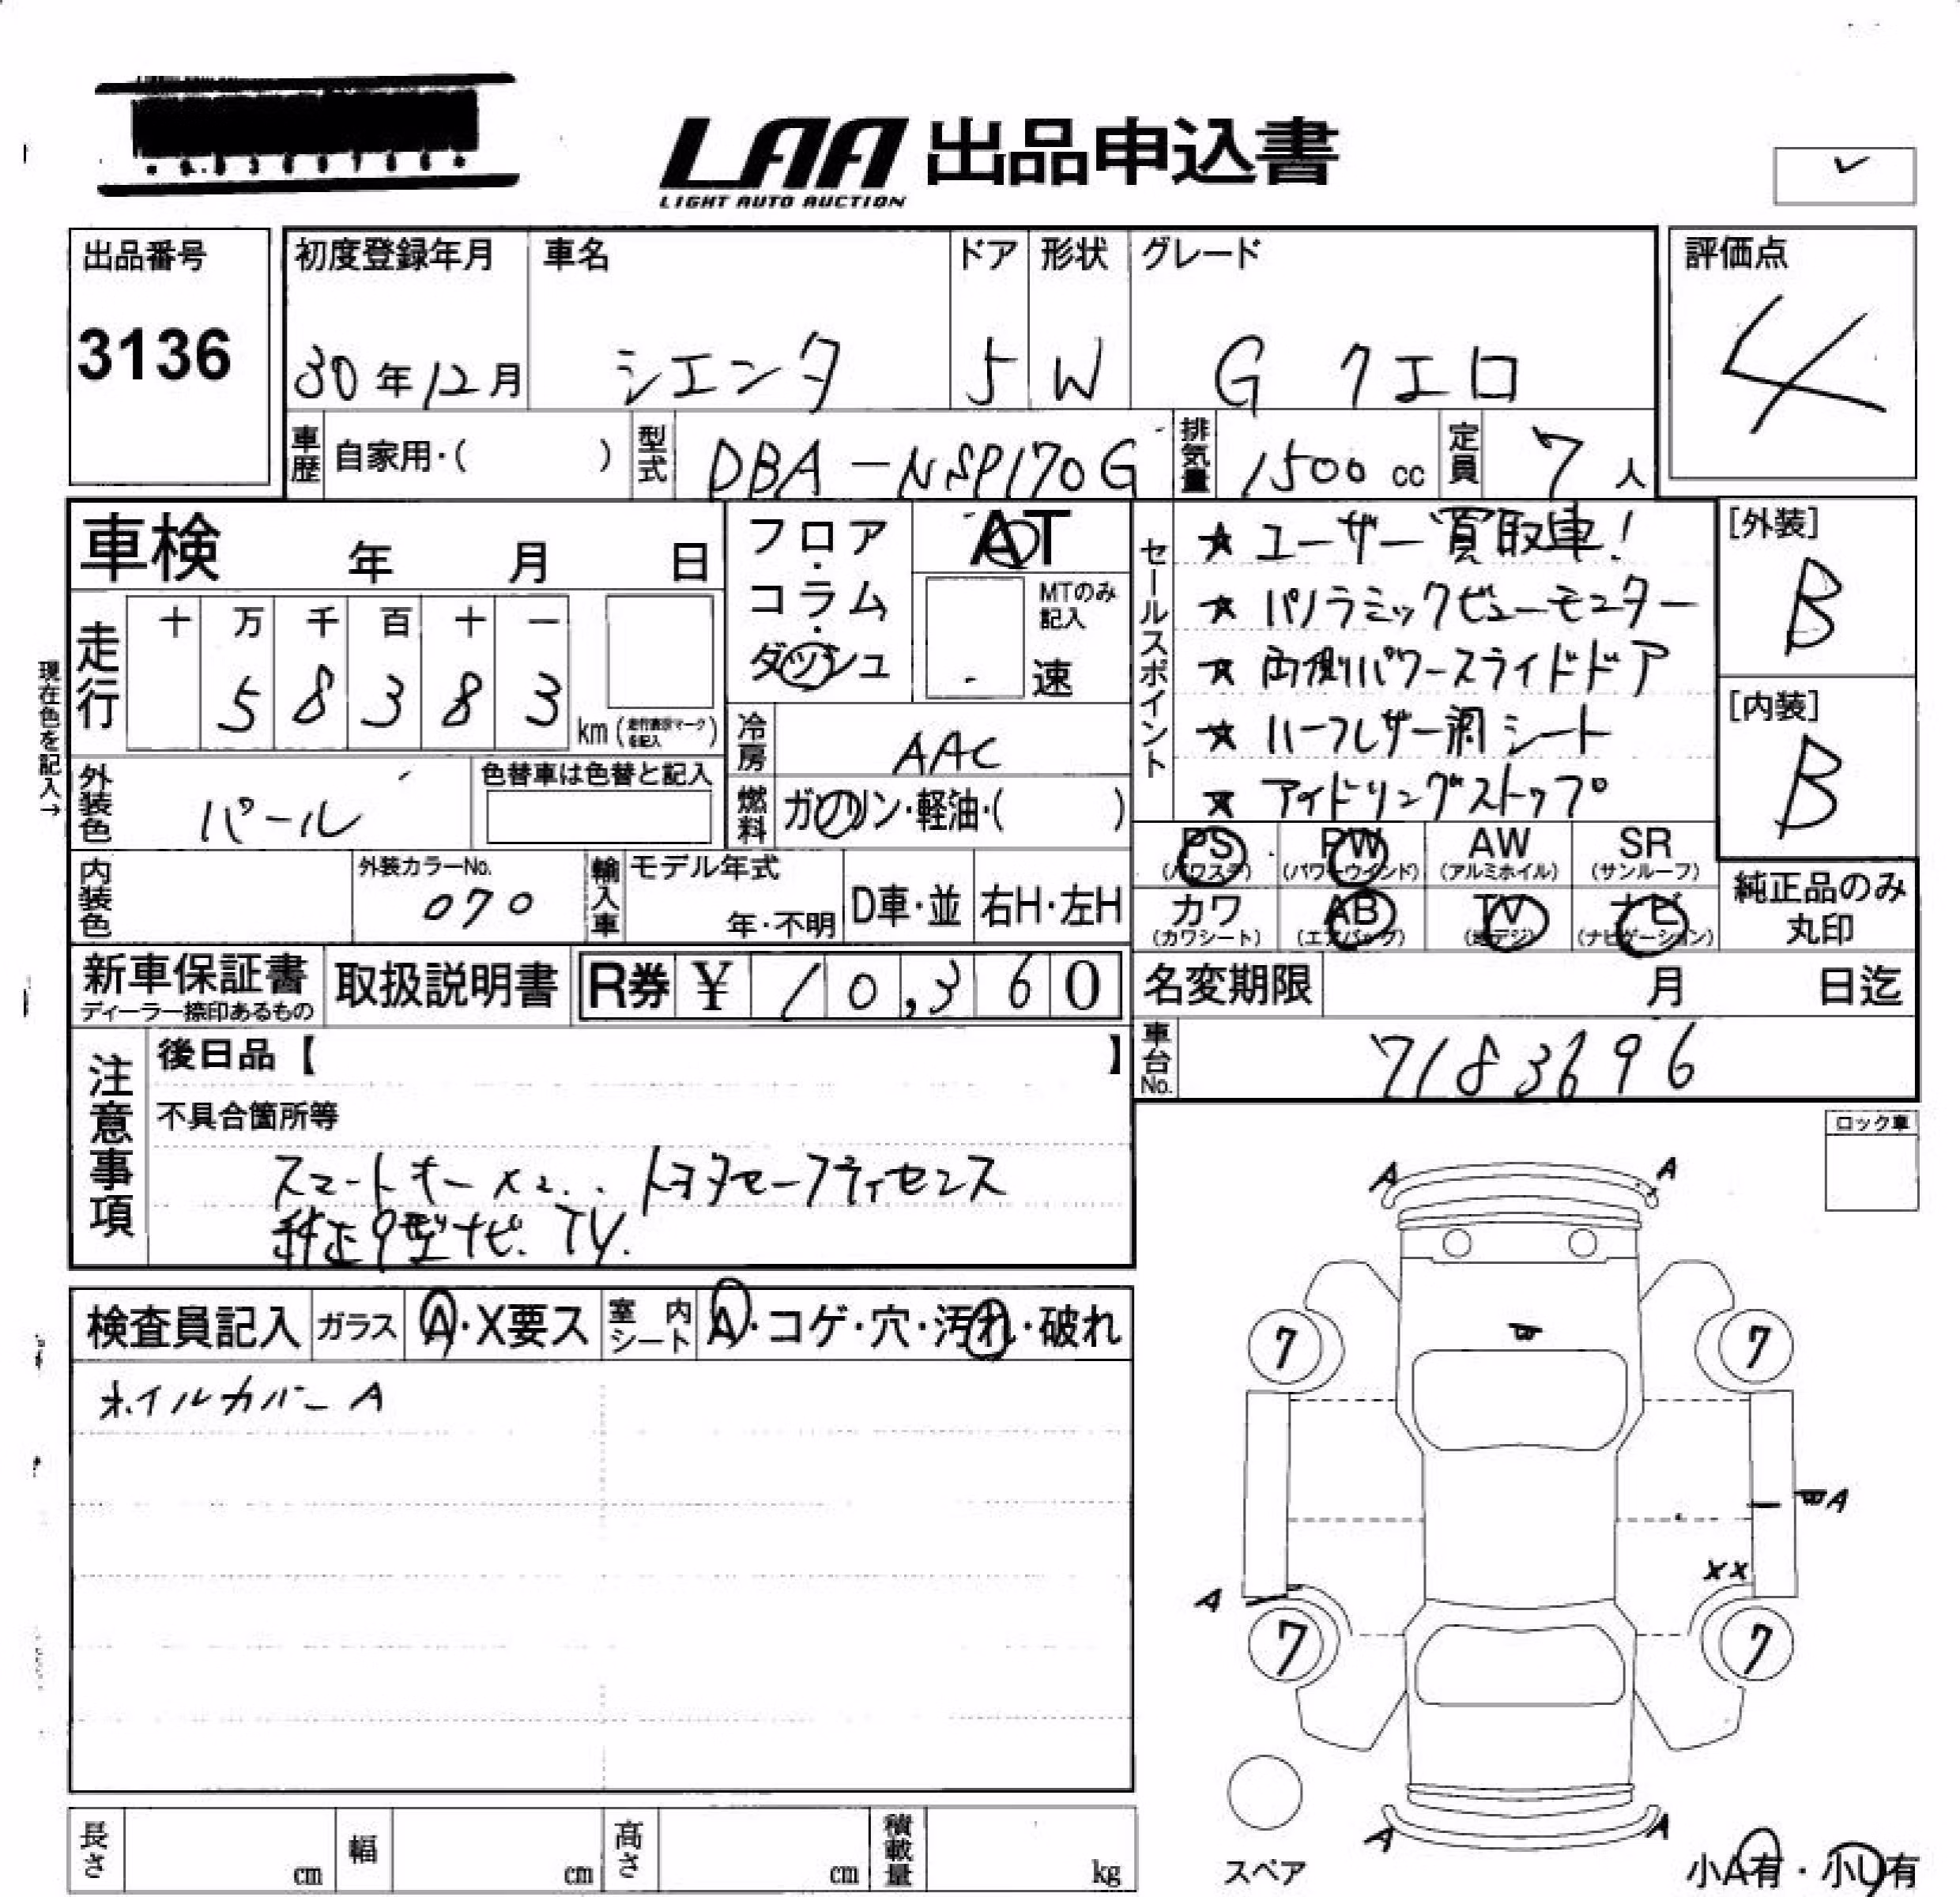 LAA 出品申込書
LIGHT AUTO AUCTION
出品番号
3136
初度登録年月 車名 ドア 形状 グレード
30年12月 シエンタ 5 W G クエロ
評価点
4
車歴 自家用・( ) 型式 DBA-NSP170G 排気量 1500 cc 定員 7人
車検 年 月 日
フロア・コラム・ダッシュ
AT
MTのみ記入
速
セールスポイント
★ ユーザー買取車!
★ パノラミックビューモニター
★ 両側パワースライドドア
★ ハーフレザー調シート
★ アイドリングストップ
[外装]
B
[内装]
B
現在色を記入→
走行 十 万 千 百 十 一
5 8 3 8 3 km
冷房 AAC
外装色 パール
色替車は色替と記入
燃料 ガソリン・軽油・( )
PS AW SR
PW
(パワステ) (パワーウインド) (アルミホイル) (サンルーフ)
カワ AB TV ナビ
(カワシート) (エアバッグ) (地デジ) (ナビゲーション)
純正品のみ
丸印
内装色
外装カラーNo.
070
輸入車 モデル年式
年・不明
D車・並 右H・左H
新車保証書
ディーラー捺印あるもの
取扱説明書
R券 ¥ 10,360
名変期限 月 日迄
車台No. 7183696
注意事項
後日品【 】
不具合箇所等
スマートキー×2.. トヨタセーフティセンス
純正9型ナビ. TV.
ロック車
検査員記入 ガラス A・X要ス 室内シート A・コゲ・穴・汚れ・破れ
ホイルカバー A
A A
W
7 7
WA
XX
A
7 7
A A
スペア
小A有・小U有
長さ cm 幅 cm 高さ cm 積載量 kg